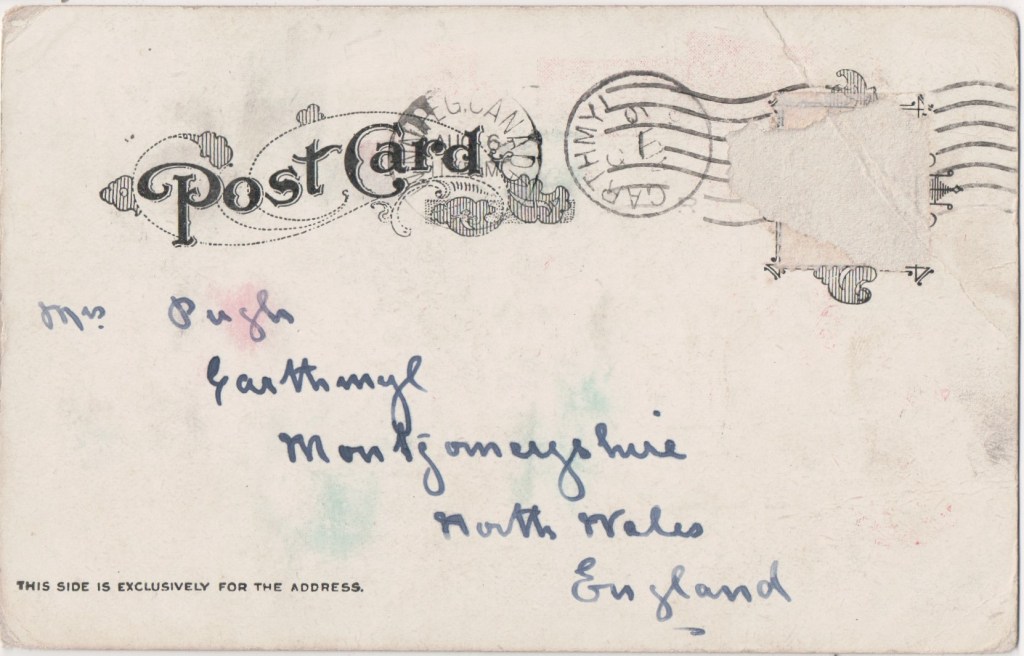 Post Card
GARTHMYL
Mrs Pugh
Garthmyl
Montgomeryshire
North Wales
England
THIS SIDE IS EXCLUSIVELY FOR THE ADDRESS.